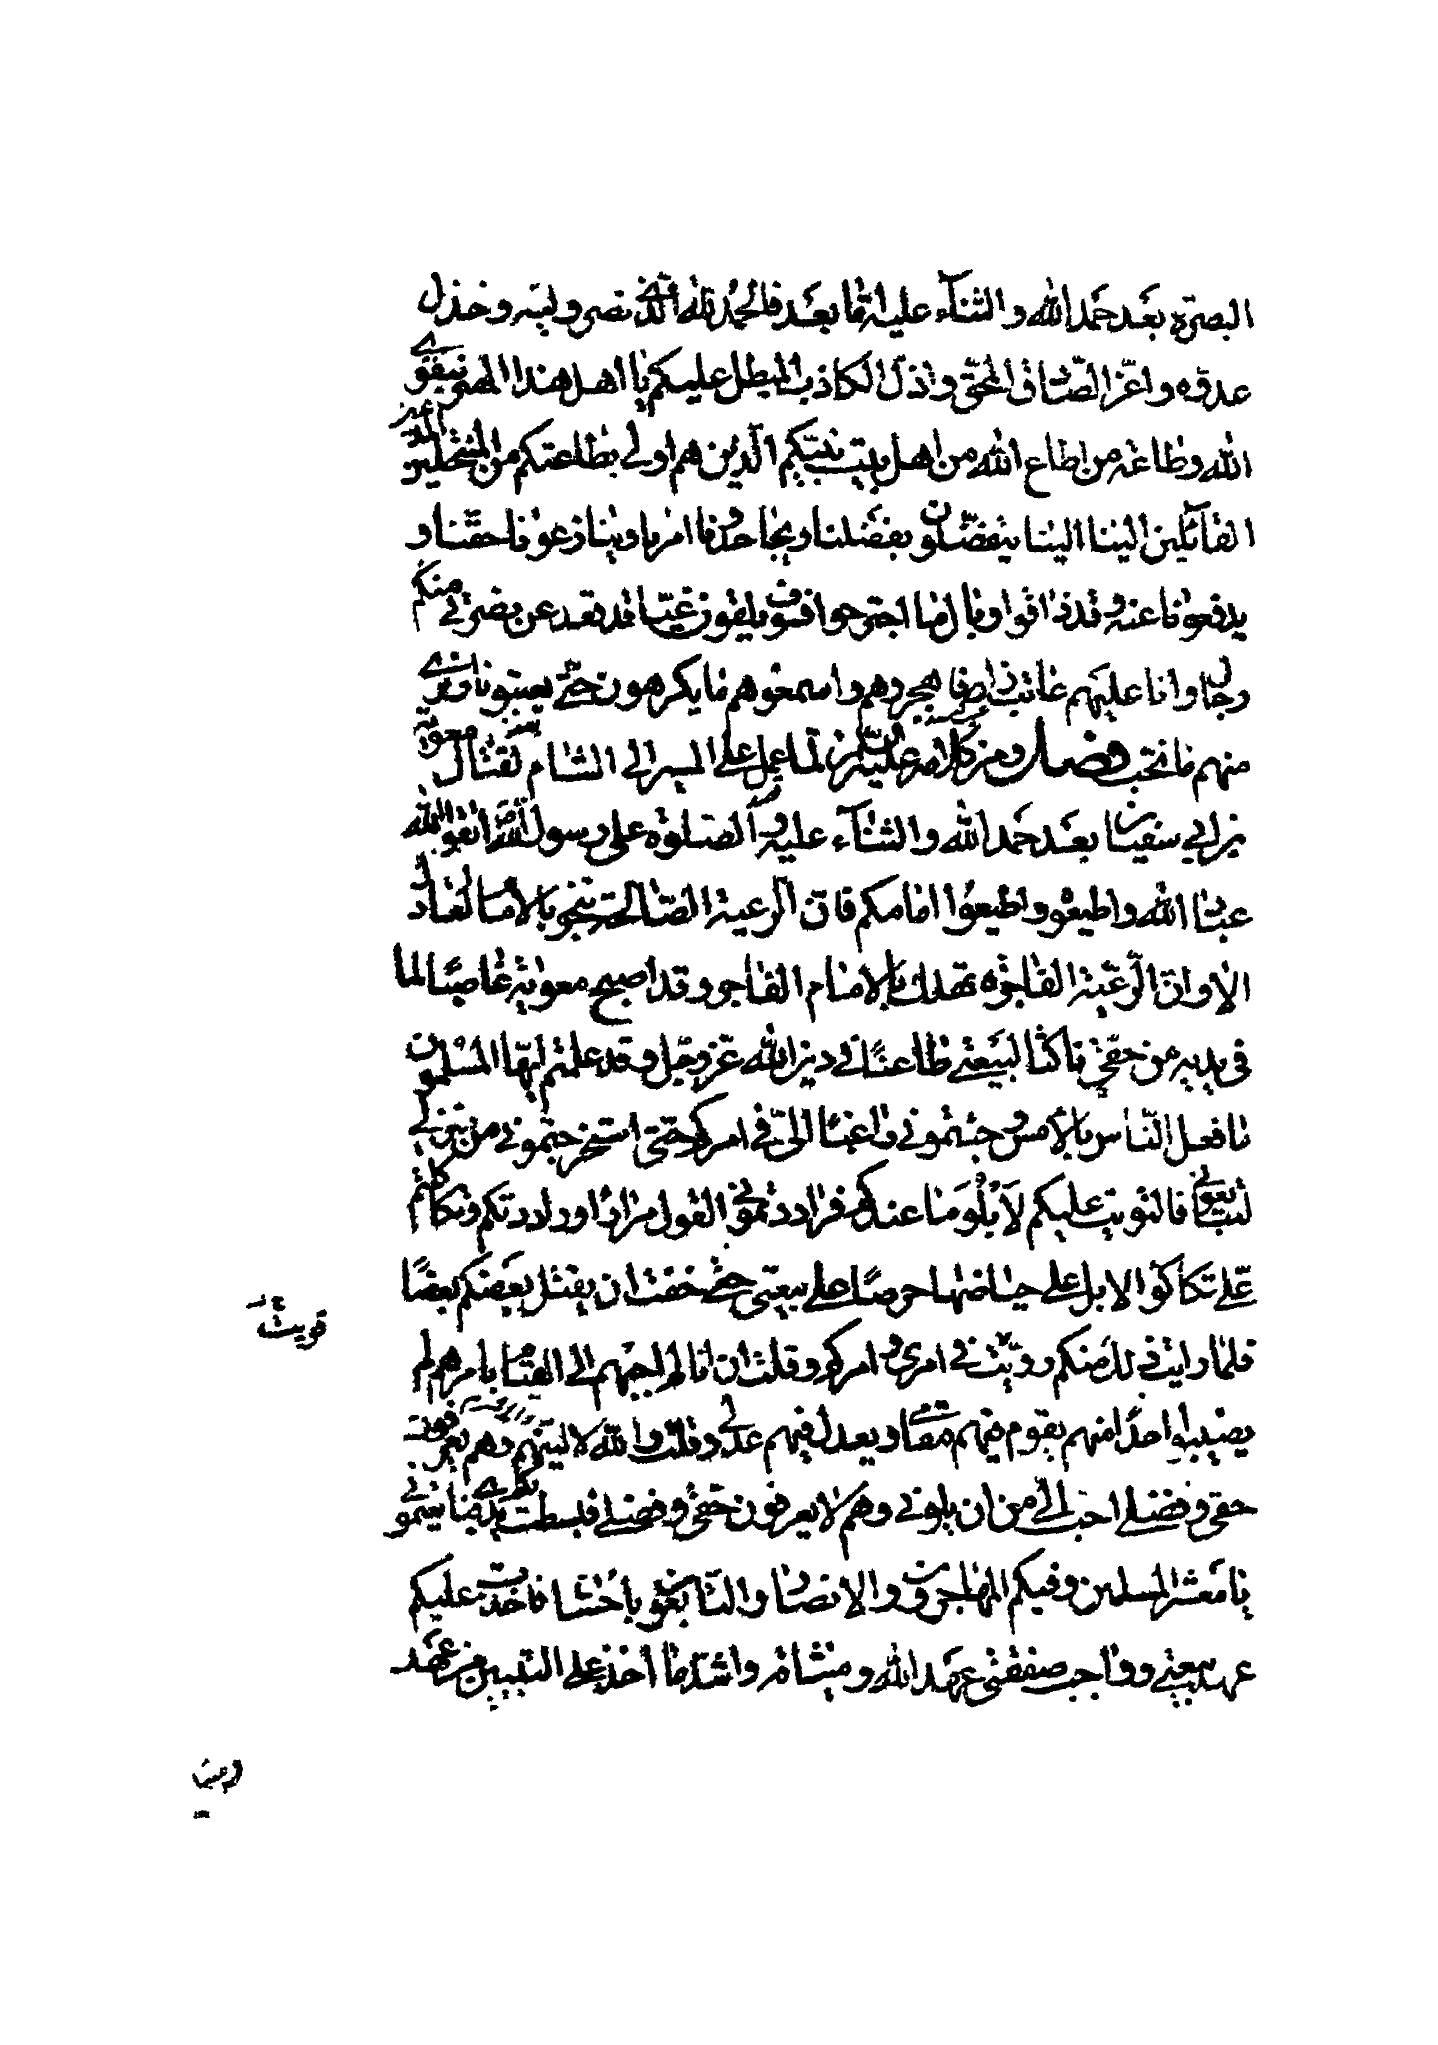 البصرة بعد حمد الله والثناء عليه امّا بعد فالحمد لله الذي نصر وليّه وخذل
عدوّه واعزّ الصّادق المحقّ واذلّ الكاذب المبطل عليكم يا اهل هذا المصر بتقوى
الله وطاعة من اطاع الله من اهل بيت نبيّكم الّذين هم اولى بطاعتكم من المنتحلين المدّعين
القائلين الينا الينا يتفضّلون بفضلنا ويجاحدونا امرنا وينازعونا حقّنا و
يدفعونا عنه وقد ذاقوا وبال ما اجترحوا فسوف يلقون غيّا قد قعد عن نصرتي منكم
رجال وانا عليهم عاتب زار فاهجروهم واسمعوهم ما يكرهون حتّى يعتبونا ونرى
منهم ما نحبّ فصل ومن كلامه عليه السّلام لمّا عمل على المسير الى الشّام لقتال معوية
بن ابي سفيان بعد حمد الله والثناء عليه والصّلوة على رسول الله اتّقوا الله
عباد الله واطيعوه واطيعوا امامكم فانّ الرّعيّة الصّالحة تنجو بالامام العادل
الا وانّ الرّعيّة الفاجرة تهلك بالامام الفاجر وقد اصبح معوية غاصبًا لما
في يديه من حقّي ناكثا لبيعتي طاعنًا في دين الله عزّ وجلّ وقد علمتم ايّها المسلمون
ما فعل النّاس بالامس وجئتموني راغبًا اليّ في امركم حتّى استخرجتموني من منزلي
لتبايعوني فالتويت عليكم لأبلو ما عندكم فراددتموني القول مرارًا وراددتكم وتكأكأتم
عليّ تكأكؤ الابل على حياضها حرصًا على بيعتي حتّى خفت ان يقتل بعضكم بعضًا
فلمّا رايت ذلك منكم روّيت في امري وامركم وقلت ان انا لم اجبهم الى القيام بامرهم لم
يصيبوا احدًا منهم يقوم فيهم مقامي ويعدل فيهم عدلي وقلت والله لالينّهم وهم يعرفون
حقي وفضلي احبّ اليّ من ان يلوني وهم لا يعرفون حقّي وفضلي فبسطت يدي فبايعتموني
يا معشر المسلمين وفيكم المهاجرون والانصار والتّابعون باحسان فاخذت عليكم
عهد بيعتي وواجب صفقتي عهد الله وميثاقه واشدّ ما اخذ على النّبيّين من عهد